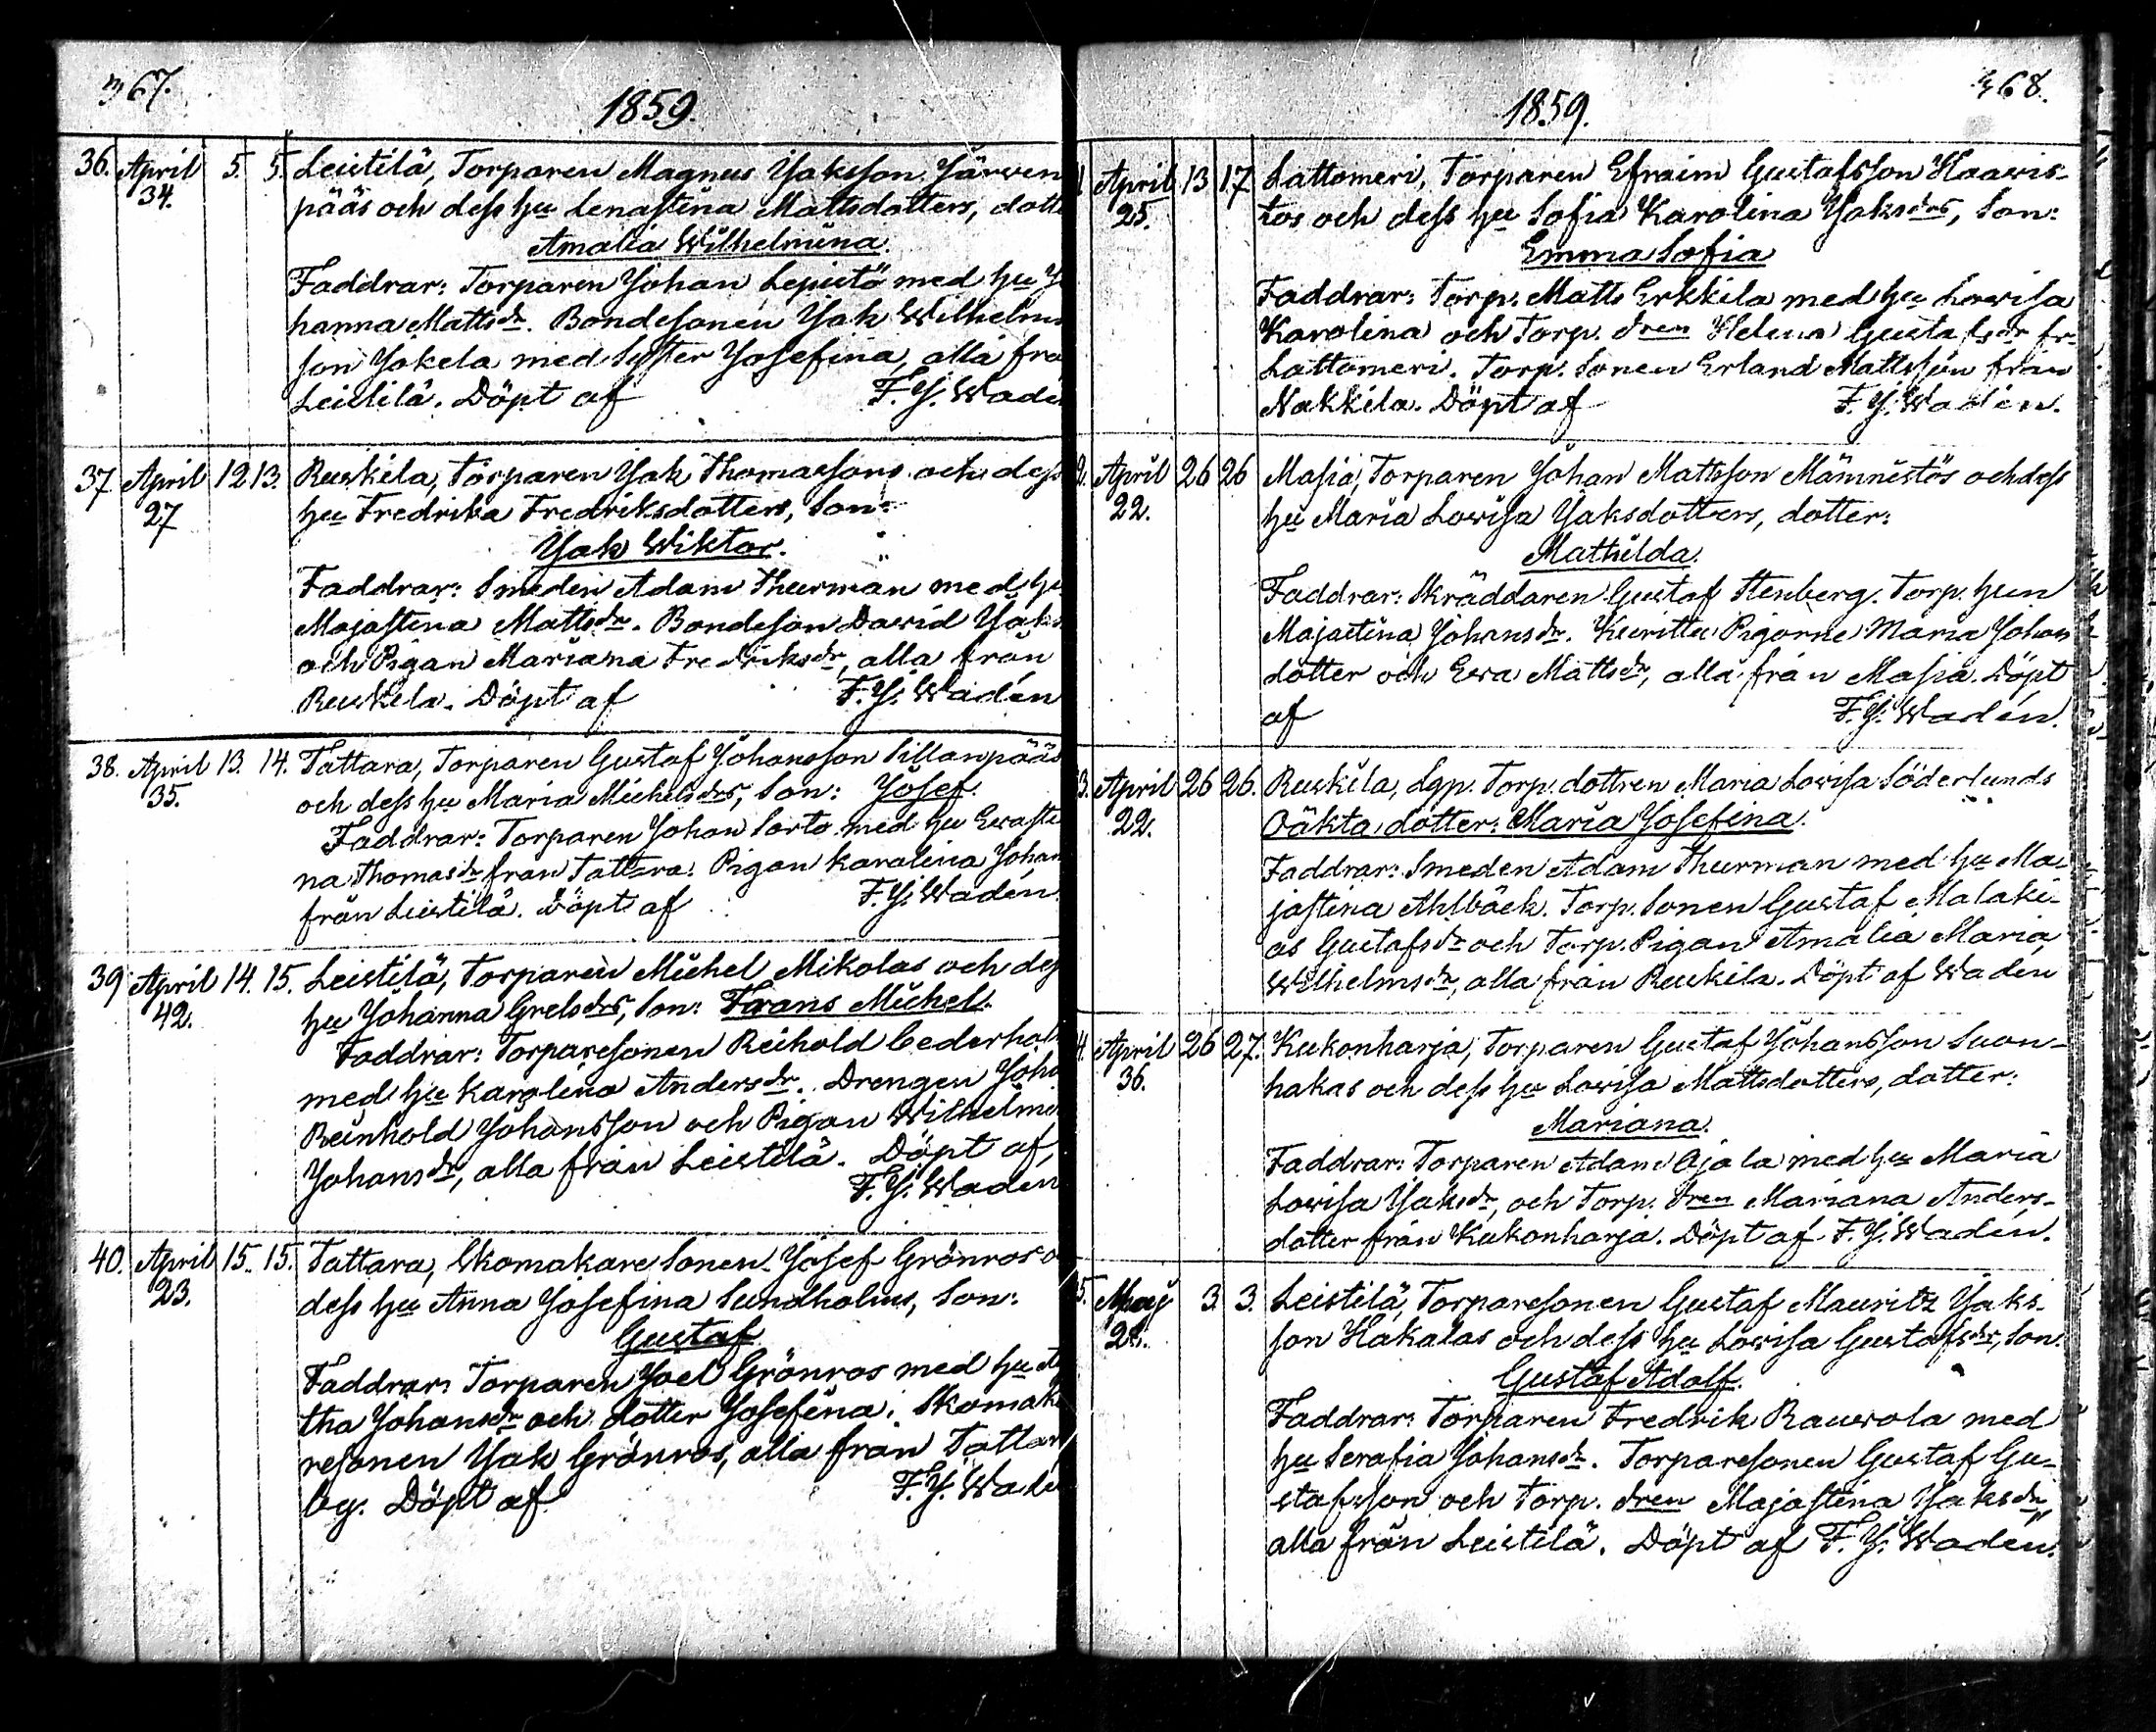 367.
1859.
36. April 5. 5. Leistilä, Torparen Magnus Jaksson Järven
34. pääs och dess hu Lenastina Mattsdotters, dott
Amalia Wilhelmina.
Faddrar: Torparen Johan Lepistö med hu Jo
hanna Mattsdr. Bondesonen Jak Wilhelms
son Jokela med Syster Josefina, alla frå
Leistilä. Döpt af F. J. Wadé
37 April 12 13. Ruskila, Torparen Jak Thomassons och dess
27 hu Fredrika Fredriksdotters, Son:
Jak Wiktor.
Faddrar: Smeden Adam Thurman med hu
Majastina Mattsdr. Bondeson David Jaks
och Pigan Mariana Fredriksdr, alla från
Ruskila. Döpt af F. J. Wadén
38. April 13. 14. Tattara, Torparen Gustaf Johansson Sillanpääs
35. och dess hu Maria Michelsdrs, Son: Josef.
Faddrar: Torparen Johan Sorto med hu Evasti
na Thomasdr från Tattara. Pigan Karolina Johan
från Leistilä. Döpt af F. J. Wadén.
39 April 14. 15. Leistilä, Torparen Michel Mikolas och dess
42. hu Johanna Grelsdrs, Son: Frans Michel.
Faddrar: Torparesonen Reihold Cederholm
med hu Karolina Andersdr. Drengen Joha
Reinhold Johansson och Pigan Wilhelmi
Johansdr, alla från Leistilä. Döpt af,
F. J. Wadén
40. April 15. 15. Tattara, Skomakare Sonen Josef Grönros o
23. dess hu Anna Josefina Sundholms, Son:
Gustaf
Faddrar: Torparen Joel Grönros med hu A
tha Johansdr och dotter Josefina. Skomaka
resonen Jak Grönros, alla från Tattara
by. Döpt af F. J. Wadé
368.
1859.
1 April 13 17. Lattomeri, Torparen Efraim Gustafsson Haavis-
25. tos och dess hu Sofia Karolina Jaksdrs, Son:
Emma Sofia
Faddrar: Torp. Matts Erkkila med hu Lovisa
Karolina och Torp. dren Helena Gustafsdr fr.
Lattomeri. Torp. Sonen Erland Mattsson från
Nakkila. Döpt af F. J. Wadén.
2. April 26 26 Masia, Torparen Johan Mattsson Männistös och dess
22. hu Maria Lovisa Jaksdotters, dotter:
Mathilda.
Faddrar: Skräddaren Gustaf Stenberg. Torp. hun
Majastina Johansdr. Kuritta Pigorne Maria Johans
dotter och Eva Mattsdr, alla från Masia. Döpt
af F. J. Wadén.
3. April 26 26. Ruskila, Lgp. Torp. dottren Maria Lovisa Söderlunds
22. Oäkta dotter: Maria Josefina.
Faddrar: Smeden Adam Thurman med hu Ma-
jastina Ahlbäck. Torp. Sonen Gustaf Malaki-
as Gustafsdr och Torp. Pigan Amalia Maria
Wilhelmsdr, alla från Ruskila. Döpt af Wadén
4. April 26 27. Kukonharja, Torparen Gustaf Johansson Suon-
36. hakas och dess hu Lovisa Mattsdotters, dotter:
Mariana.
Faddrar: Torparen Adam Ojala med hu Maria
Lovisa Jaksdr, och Torp. dren Mariana Anders-
dotter från Kukonharja. Döpt af F. J. Wadén.
5. Maj 3. 3. Leistilä, Torparesonen Gustaf Mauritz Jaks-
28. son Hakalas och dess hu Lovisa Gustafsdr, Son.
Gustaf Adolf.
Faddrar: Torparen Fredrik Rauvola med
hu Serafia Johansdr. Torparesonen Gustaf Gu-
stafsson och Torp. dren Majastina Jaksdr,
alla från Leistilä. Döpt af F. J. Wadén.